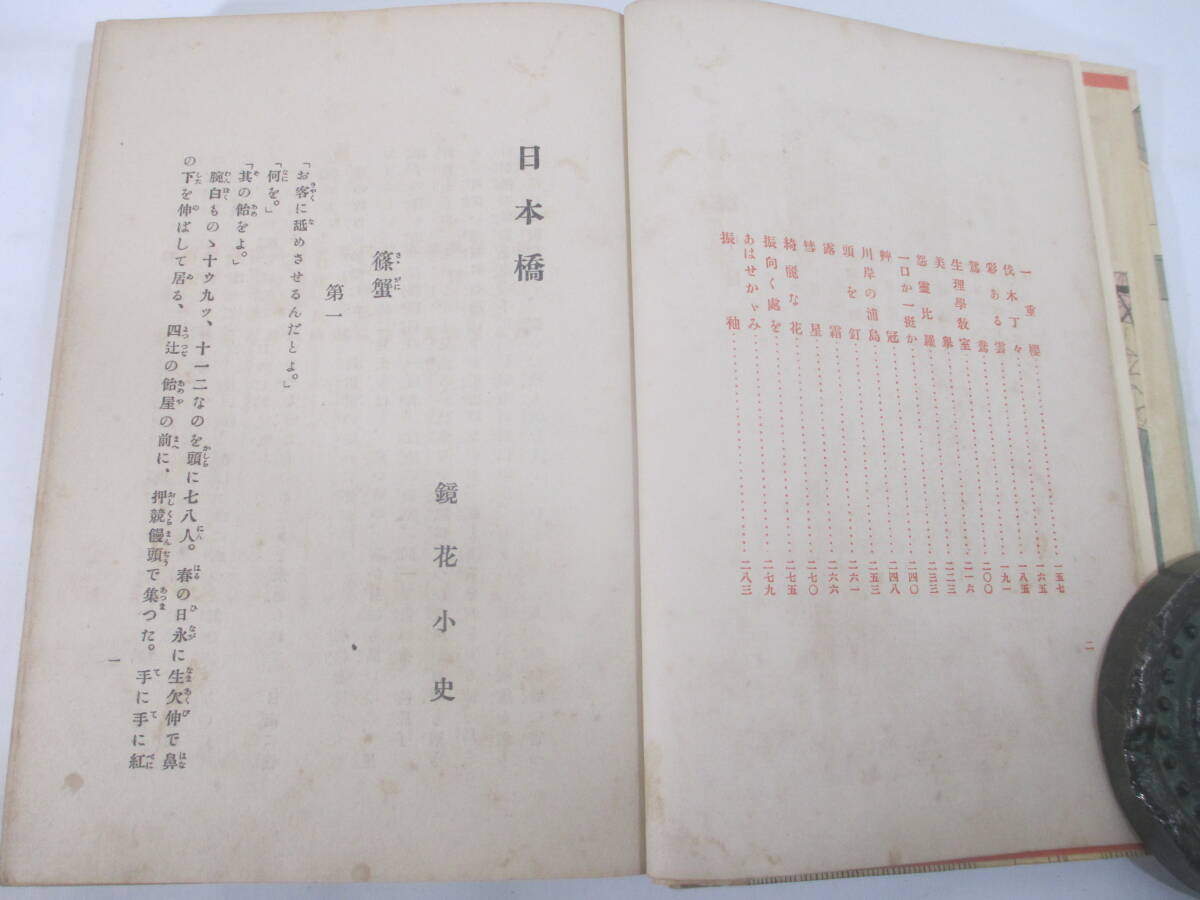 一重櫻……一五七
伐木丁々……一六五
彩ある雲……一八五
鴛鴦……一九一
生理學教室……二〇〇
美擧……二一六
怨靈比羅……二二三
一口か一挺か……二三三
艸冠……二四〇
川岸の浦島……二四八
頭を釘……二五三
露霜……二六一
彗星……二六六
綺麗な花……二七〇
振向く處を……二七五
あはせかゞみ……二七九
振袖……二八三
二
日本橋
鏡花小史
篠蟹
第一
「お客に舐めさせるんだとよ。」
「何を。」
「其の飴をよ。」
腕白ものゝ十ウ九ツ、十一二なのを頭に七八人。春の日永に生欠伸で鼻
の下を伸ばして居る、四辻の飴屋の前に、押競饅頭で集つた。手に手に紅
一